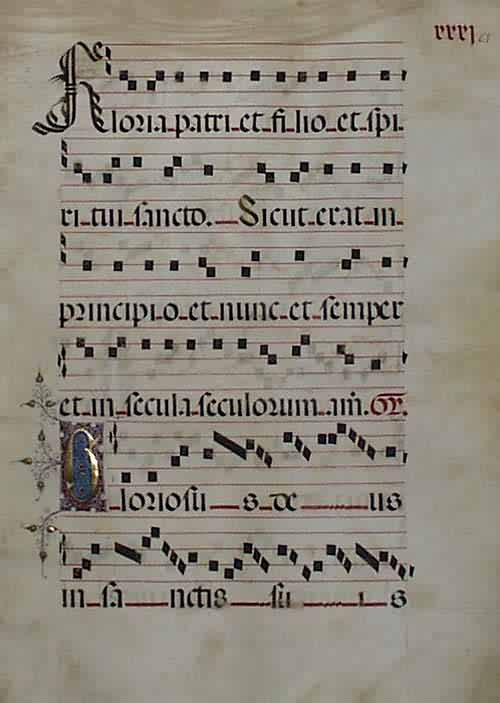 xxxj
Gloria patri et filio et spi
ritui sancto. Sicut erat in
principio et nunc et semper
et in secula seculorum am̄.
Gloriosus deus
in sanctis suis